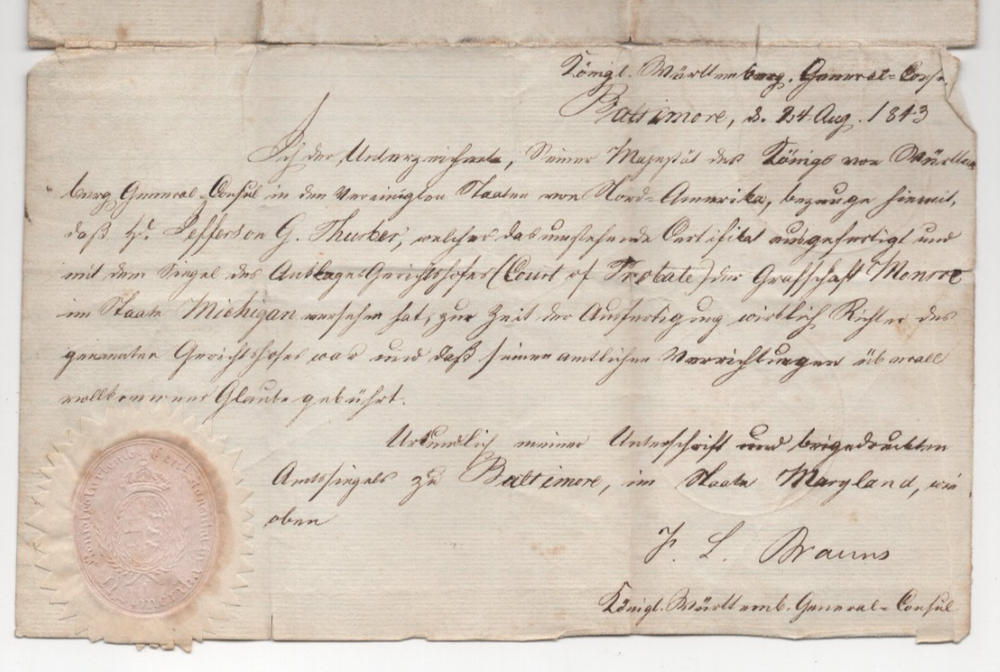 Königl. Württemberg. General-Cons
Baltimore, d. 24 Aug. 1843
Ich der Unterzeichnete, Seiner Majestät des Königs von Württem
berg General-Consul in den Vereinigten Staaten von Nord-Amerika, bezeuge hiemit,
daß Hr. Jefferson G. Thurber, welcher das umstehende Certifikat ausgefertigt und
mit dem Siegel des Gerichtshofes (Court of Probate) der Grafschaft Monroe
im Staate Michigan versehen hat, zur Zeit der Ausfertigung wirklich Richter des
genannten Gerichtshofes war und daß seinen amtlichen Verrichtungen überall
vollkommener Glaube gebührt.
Urkundlich meiner Unterschrift und beigedruckten
Amtssiegels zu Baltimore, im Staate Maryland, wie
oben
F. L. Brauns
Königl. Württemb. General-Consul